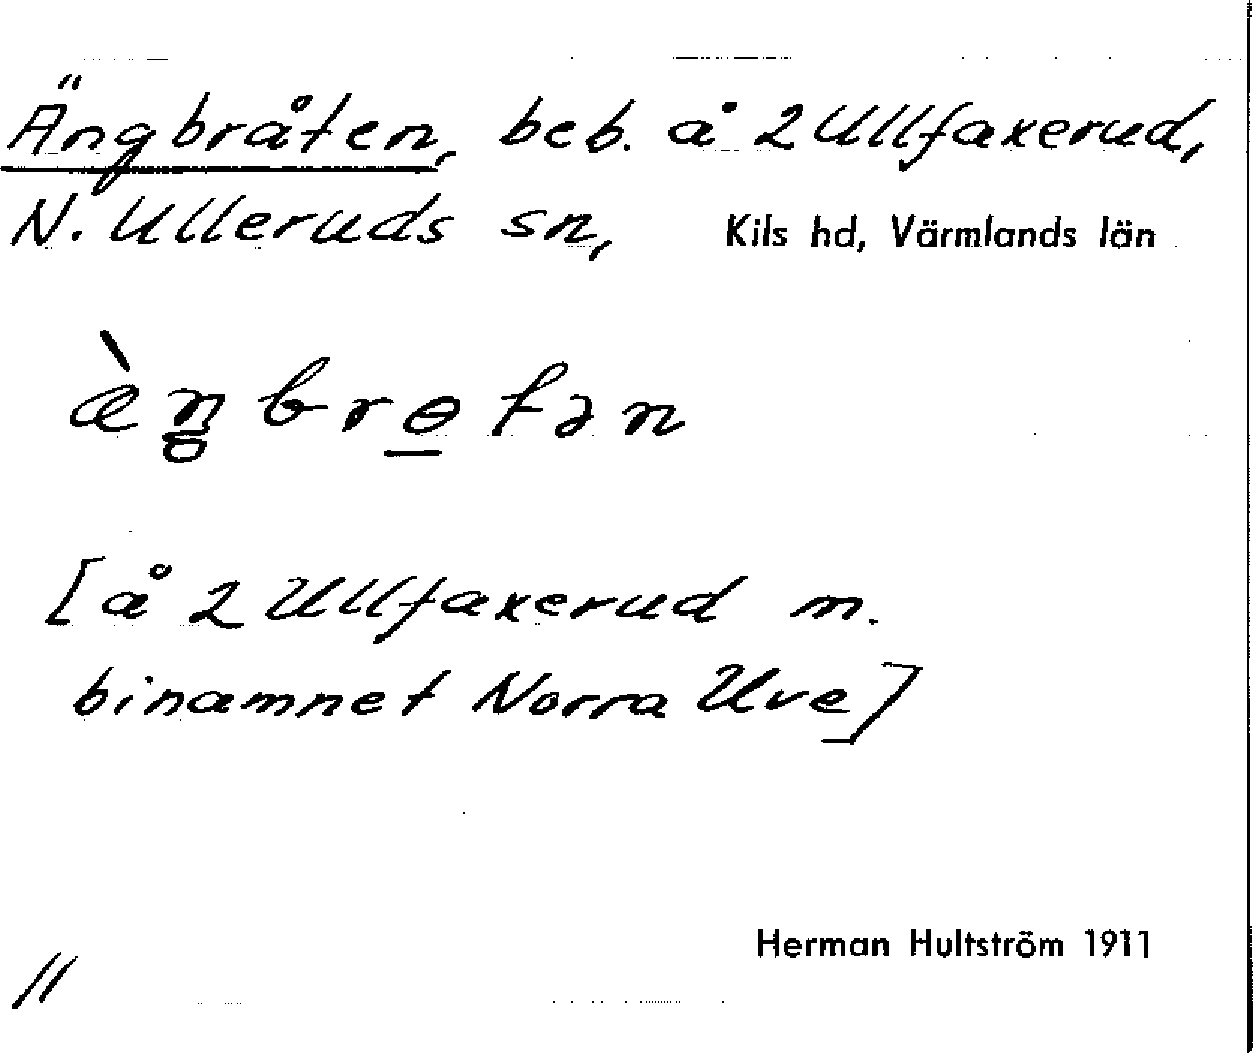 Ängbråten, beb. å 2 Ullfaxerud,
N. Ulleruds sn, Kils hd, Värmlands län
æ̀ŋbrɵtən
[å 2 Ullfaxerud m.
binamnet Norra Uve]
Herman Hultström 1911
11